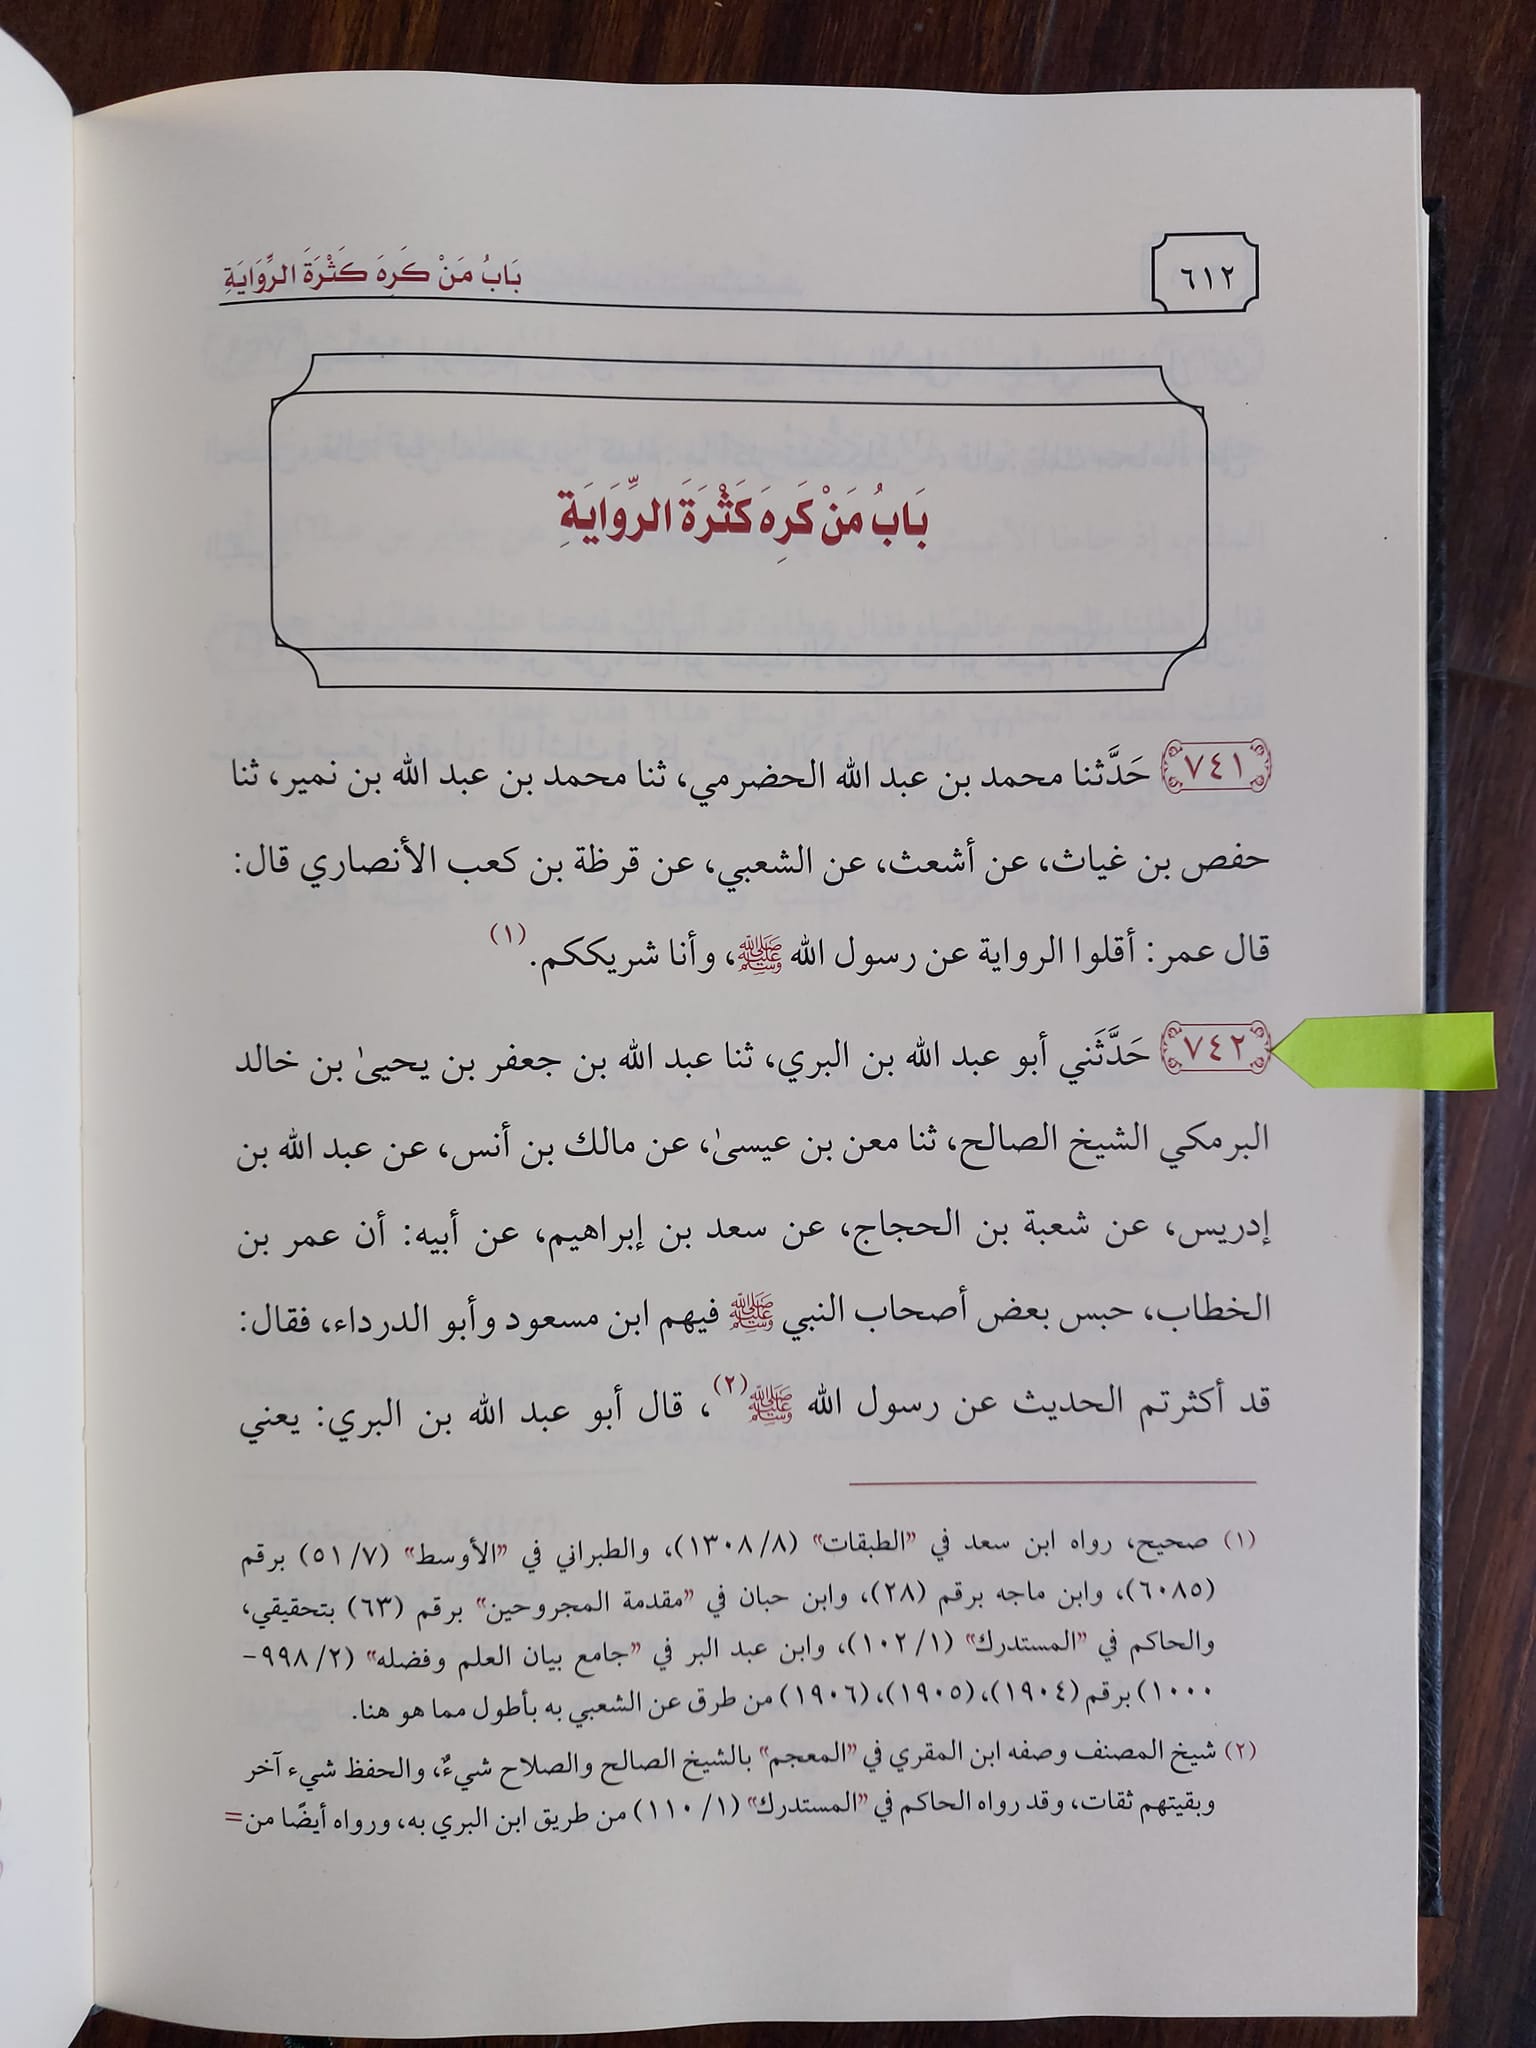 ٦١٢
بَابُ مَنْ كَرِهَ كَثْرَةَ الرِّوَايَةِ
بَابُ مَنْ كَرِهَ كَثْرَةَ الرِّوَايَةِ
٧٤١ حَدَّثنا محمد بن عبد الله الحضرمي، ثنا محمد بن عبد الله بن نمير، ثنا
حفص بن غياث، عن أشعث، عن الشعبي، عن قرظة بن كعب الأنصاري قال:
قال عمر: أقلوا الرواية عن رسول الله ﷺ، وأنا شريككم.(١)
٧٤٢ حَدَّثَني أبو عبد الله بن البري، ثنا عبد الله بن جعفر بن يحيىٰ بن خالد
البرمكي الشيخ الصالح، ثنا معن بن عيسىٰ، عن مالك بن أنس، عن عبد الله بن
إدريس، عن شعبة بن الحجاج، عن سعد بن إبراهيم، عن أبيه: أن عمر بن
الخطاب، حبس بعض أصحاب النبي ﷺ فيهم ابن مسعود وأبو الدرداء، فقال:
قد أكثرتم الحديث عن رسول الله ﷺ(٢)، قال أبو عبد الله بن البري: يعني
(١) صحيح، رواه ابن سعد في "الطبقات" (٨/ ١٣٠٨)، والطبراني في "الأوسط" (٧/ ٥١) برقم
(٦٠٨٥)، وابن ماجه برقم (٢٨)، وابن حبان في "مقدمة المجروحين" برقم (٦٣) بتحقيقي،
والحاكم في "المستدرك" (١/ ١٠٢)، وابن عبد البر في "جامع بيان العلم وفضله" (٢/ ٩٩٨-
١٠٠٠) برقم (١٩٠٤)، (١٩٠٥)، (١٩٠٦) من طرق عن الشعبي به بأطول مما هو هنا.
(٢) شيخ المصنف وصفه ابن المقري في "المعجم" بالشيخ الصالح والصلاح شيءٌ، والحفظ شيء آخر
وبقيتهم ثقات، وقد رواه الحاكم في "المستدرك" (١/ ١١٠) من طريق ابن البري به، ورواه أيضًا من =